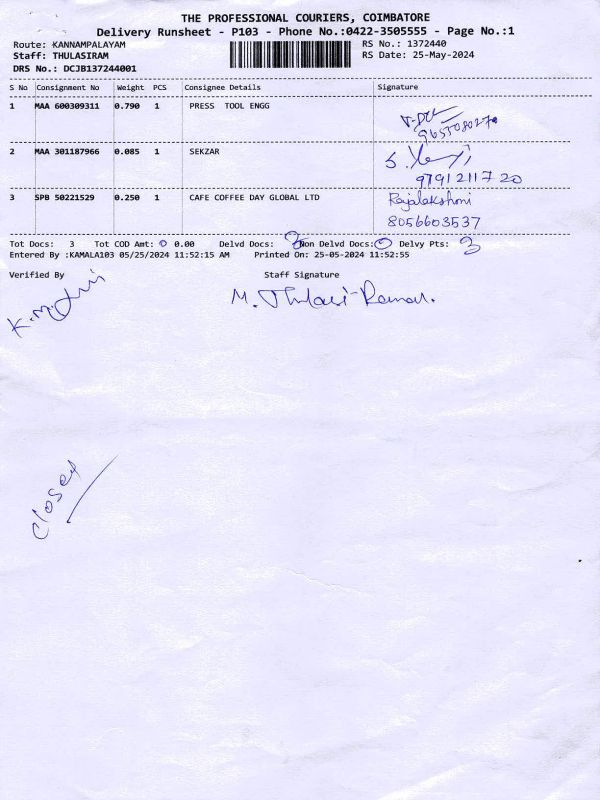 THE PROFESSIONAL COURIERS, COIMBATORE
Delivery Runsheet - P103 - Phone No.:0422-3505555 - Page No.:1
Route: KANNAMPALAYAM RS No.: 1372440
Staff: THULASIRAM RS Date: 25-May-2024
DRS No.: DCJB137244001
S No Consignment No Weight PCS Consignee Details Signature
1 MAA 600309311 0.790 1 PRESS TOOL ENGG
2 MAA 301187966 0.085 1 SEKZAR
9791211720
3 SPB 50221529 0.250 1 CAFE COFFEE DAY GLOBAL LTD Rajalakshmi
8056603537
Tot Docs: 3 Tot COD Amt: 0 0.00 Delvd Docs: 3 Non Delvd Docs: 0 Delvy Pts: 3
Entered By :KAMALA103 05/25/2024 11:52:15 AM Printed On: 25-05-2024 11:52:55
Verified By Staff Signature
M. Thulasi Raman.
closed